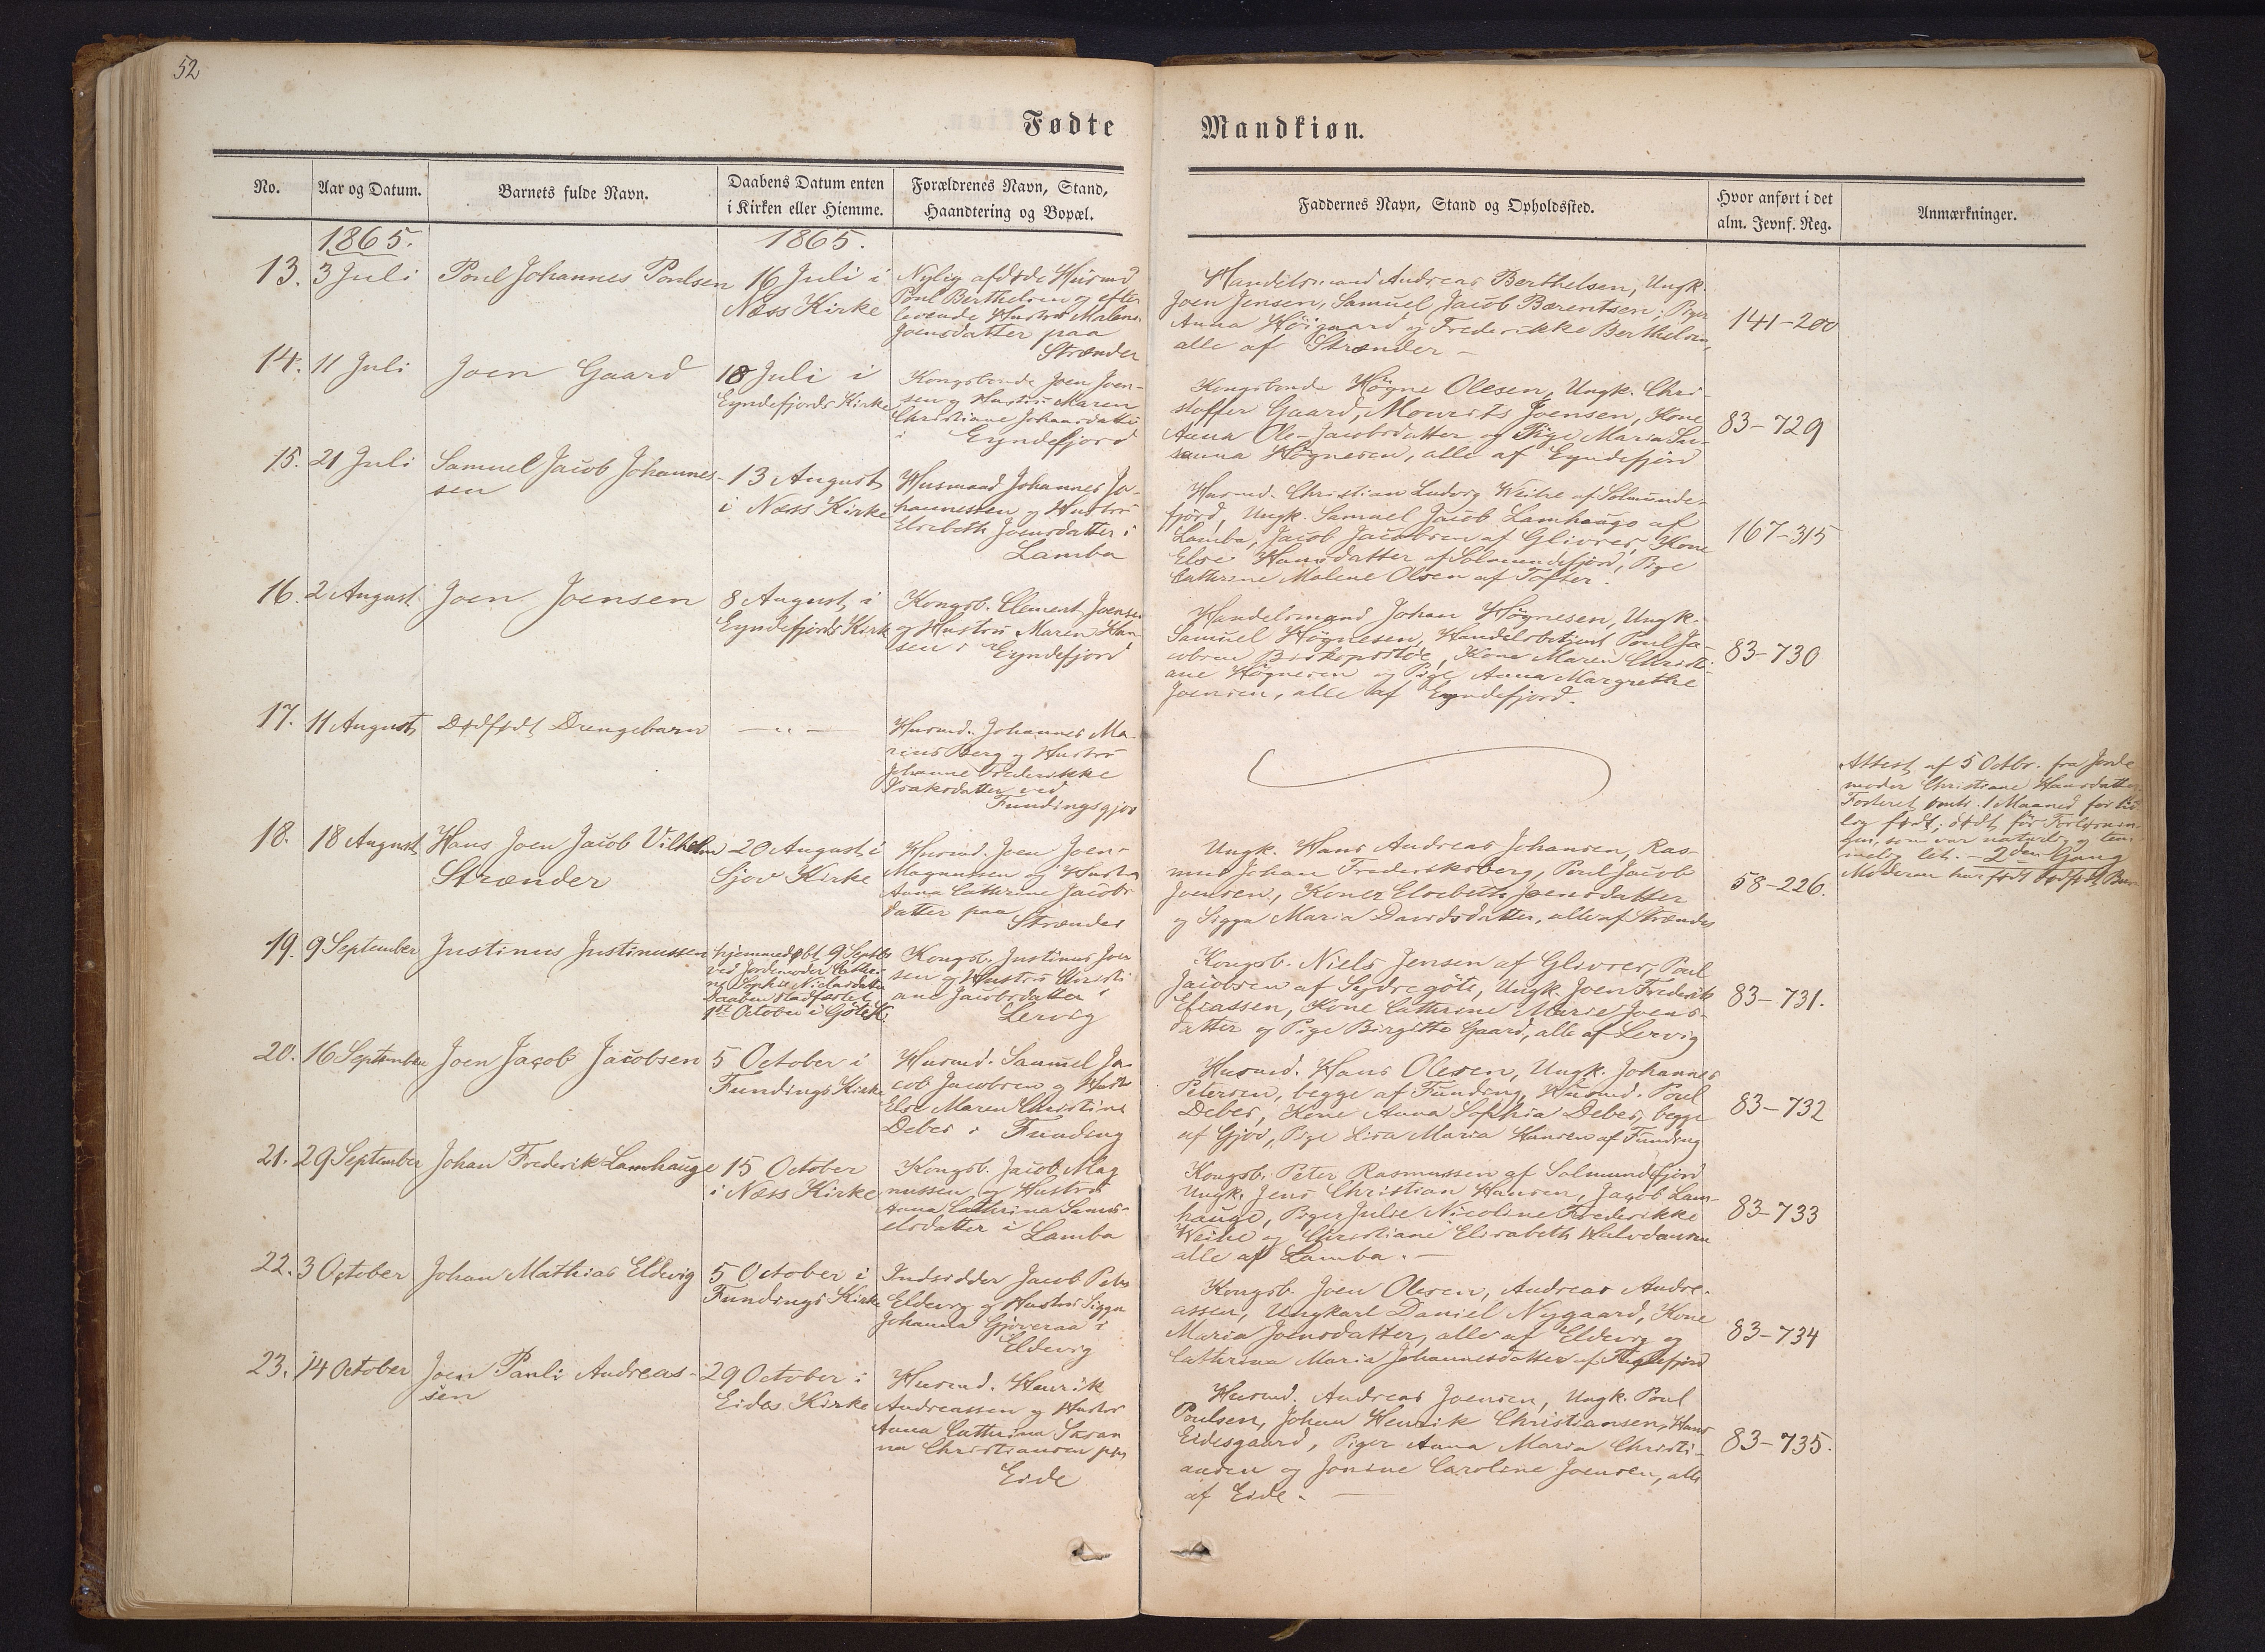 52
Fødte
Mandkiøn.
No.
Aar og Datum.
Barnets fulde Navn.
Daabens Datum enten
i Kirken eller Hiemme.
Forældrenes Navn, Stand,
Haandtering og Bopæl.
Faddernes Navn, Stand og Opholdssted.
Hvor anført i det
alm. Jevnf. Reg.
Anmærkninger.
1865.
1865.
13.
3 Juli
Poul Johannes Poulsen
16 Juli i
Næss Kirke
Nylig afdøde Husmd
Poul Berthelsen og efter
levende Hustru Malene
Joensdatter paa
Strænder
Handelsmand Andreas Berthelsen, Ungk.
Joen Jensen, Samuel Jacob Bærentsen; Piger
Anna Höigaard og Frederikke Berthelsen,
alle af Strænder –
141–200
14.
11 Juli
Joen Gaard
18 Juli i
Eyndefjords Kirke
Kongsbonde Joen Joen-
sen og Hustru Maren
Christiane Johansdatter
i Eyndefjord
Kongsbonde Högne Olesen, Ungk. Chri-
stoffer Gaard, Mourits Joensen, Kone
Anna Ole-Jacobsdatter og Pige Maria Su-
sanna Högnesen, alle af Eyndefjord
83–729
15.
21 Juli
Samuel Jacob Johannes-
sen
13 August
i Næss Kirke
Husmand Johannes Jo-
hannessen og Hustru
Elsebeth Joensdatter i
Lamba
Husmd. Christian Ludvig Weihe af Solmunde-
fjord, Ungk. Samuel Jacob Lamhauge af
Lamba, Jacob Jacobsen af Glivrer, Kone
Else Hansdatter af Solmundefjord, Pige
Cathrine Malene Olsen af Tofter.
167–315
16.
2 August
Joen Joensen
8 August i
Eyndefjords Kirk
Kongsb. Clement Joensen
og Hustru Maren Han
sen i Eyndefjord
Handelsmand Johan Högnesen, Ungk.
Samuel Högnesen, Handelsbetjent Poul Ja-
cobsen Biskopstöe, Kone Maren Christi-
ane Högnesen og Pige Anna Margrethe
Joensen, alle af Eyndefjord.
83–730
17.
11 August
Dødfødt Drengebarn
— " —
Husmd. Johannes Ma-
rius Berg og Hustru
Johanne Frederikke
Isaksdatter ved
Fundingsgjov
Attest af 5 Octbr. fra Jorde
moder Christiane Hansdatter
Fosteret omtr. 1 Maaned for tid
lig født; dødt før Forløsnin-
gen, som var naturlig og tem
melig let. – 2den Gang
Moderen har født dødfødt Barn
18.
18 August
Hans Joen Jacob Vilhelm
Strænder
20 August i
Sjov Kirke
Husmd. Joen Joen-
Magnussen og Hustru
Anna Cathrine Jacobs
datter paa
Strænder
Ungk. Hans Andreas Johansen, Ras-
mus Johan Frederiksberg, Poul Jacob
Joensen, Koner Elsebeth Joensdatter
og Sigga Maria Davidsdatter, alle af Strænder
58–226.
19.
9 September
Justinus Justinussen
hjemmedøbt 9 Septbr
ved Jordemoder Cathri-
ne Sophie Niclasdatter
Daaben stadfæstet
1ste October i Göte K.
Kongsb. Justinus Joen
sen og Hustru Christi
ane Jacobsdatter i
Lervig
Kongsb. Niels Jensen af Glivrer, Poul
Jacobsen af Sydregöte, Ungk. Joen Frederik
Eliassen, Kone Cathrine Marie Joens-
datter og Pige Birgitte Gaard, alle af Lervig
83–731.
20.
16 September
Joen Jacob Jacobsen
5 October i
Fundings Kirke
Husmd. Samuel Ja-
cob Jacobsen og Hustr
Else Maren Christine
Debes i Funding
Husmd. Hans Olesen, Ungk. Johannes
Petersen, begge af Funding, Husmd. Poul
Debes, Kone Anna Sophia Debes, begge
af Gjov, Pige Lisa Maria Hansen af Funding
83–732
21.
29 September
Johan Frederik Lamhauge
15 October
i Næss Kirke
Kongsb. Jacob Mag
nussen og Hustru
Anna Cathrina Samu-
elsdatter i Lamba
Kongsb. Peter Rasmussen af Solmundefjord
Ungk. Jens Christian Hansen, Jacob Lam-
hauge, Piger Julie Nicoline Frederikke
Weihe og Christiane Elisabeth Halvdansen
alle af Lamba. —
83–733
22.
3 October
Johan Mathias Eldevig
5 October i
Fundings Kirke
Indsidder Jacob Peter
Eldevig og Hustru Sigga
Johanna Gjoveraa i
Eldevig
Kongsb. Joen Olesen, Andreas Andre-
assen, Ungkarl Daniel Nygaard, Kone
Maria Joensdatter, alle af Eldevig og
Cathrina Maria Johannesdatter af
83–734
23.
14 October
Joen Pauli Andreas-
sen
29 October i
Eides Kirke
Husmd. Henrik
Andreassen og Hustru
Anna Cathrina Susan
na Christiansen paa
Eide
Husmd. Andreas Joensen, Ungk. Poul
Poulsen, Johan Henrik Christiansen, Hans
Eidesgaard, Piger Anna Maria Christi-
ansen og Jonine Caroline Joensen, alle
af Eide. —
83–735.